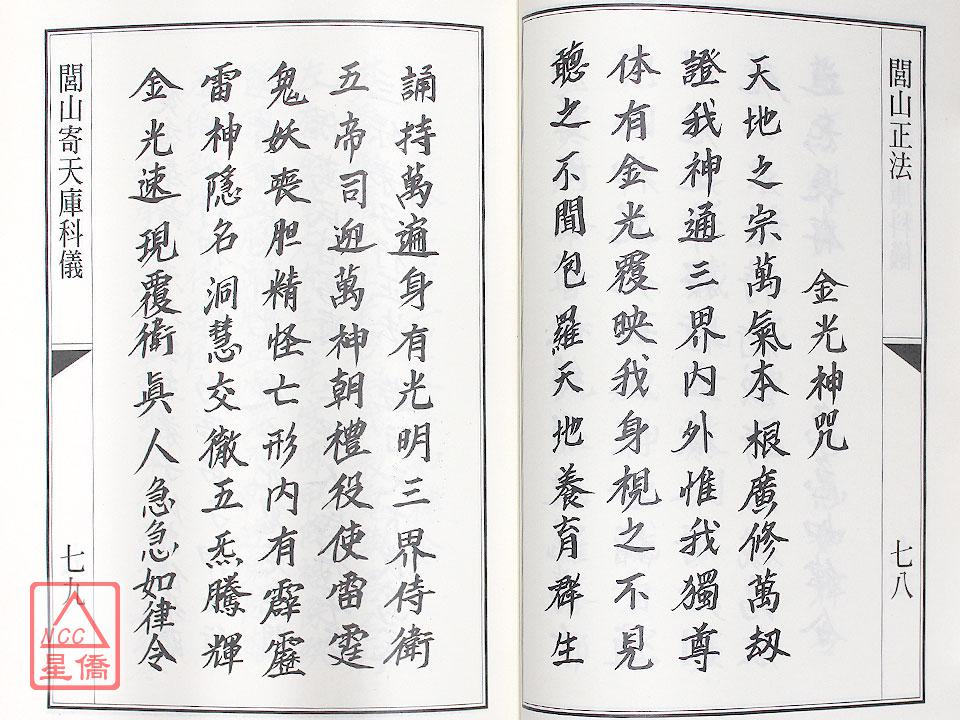 閭山正法
七八
金光神咒
天地之宗萬氣本根廣修萬刼
證我神通三界內外惟我獨尊
体有金光覆映我身視之不見
聽之不聞包羅天地養育群生
誦持萬遍身有光明三界侍衛
五帝司迎萬神朝禮役使雷霆
鬼妖喪胆精怪亡形內有霹靂
雷神隱名洞慧交徹五炁騰輝
金光速現覆衛真人急急如律令
閭山寄天庫科儀
七九
NCC
星僑